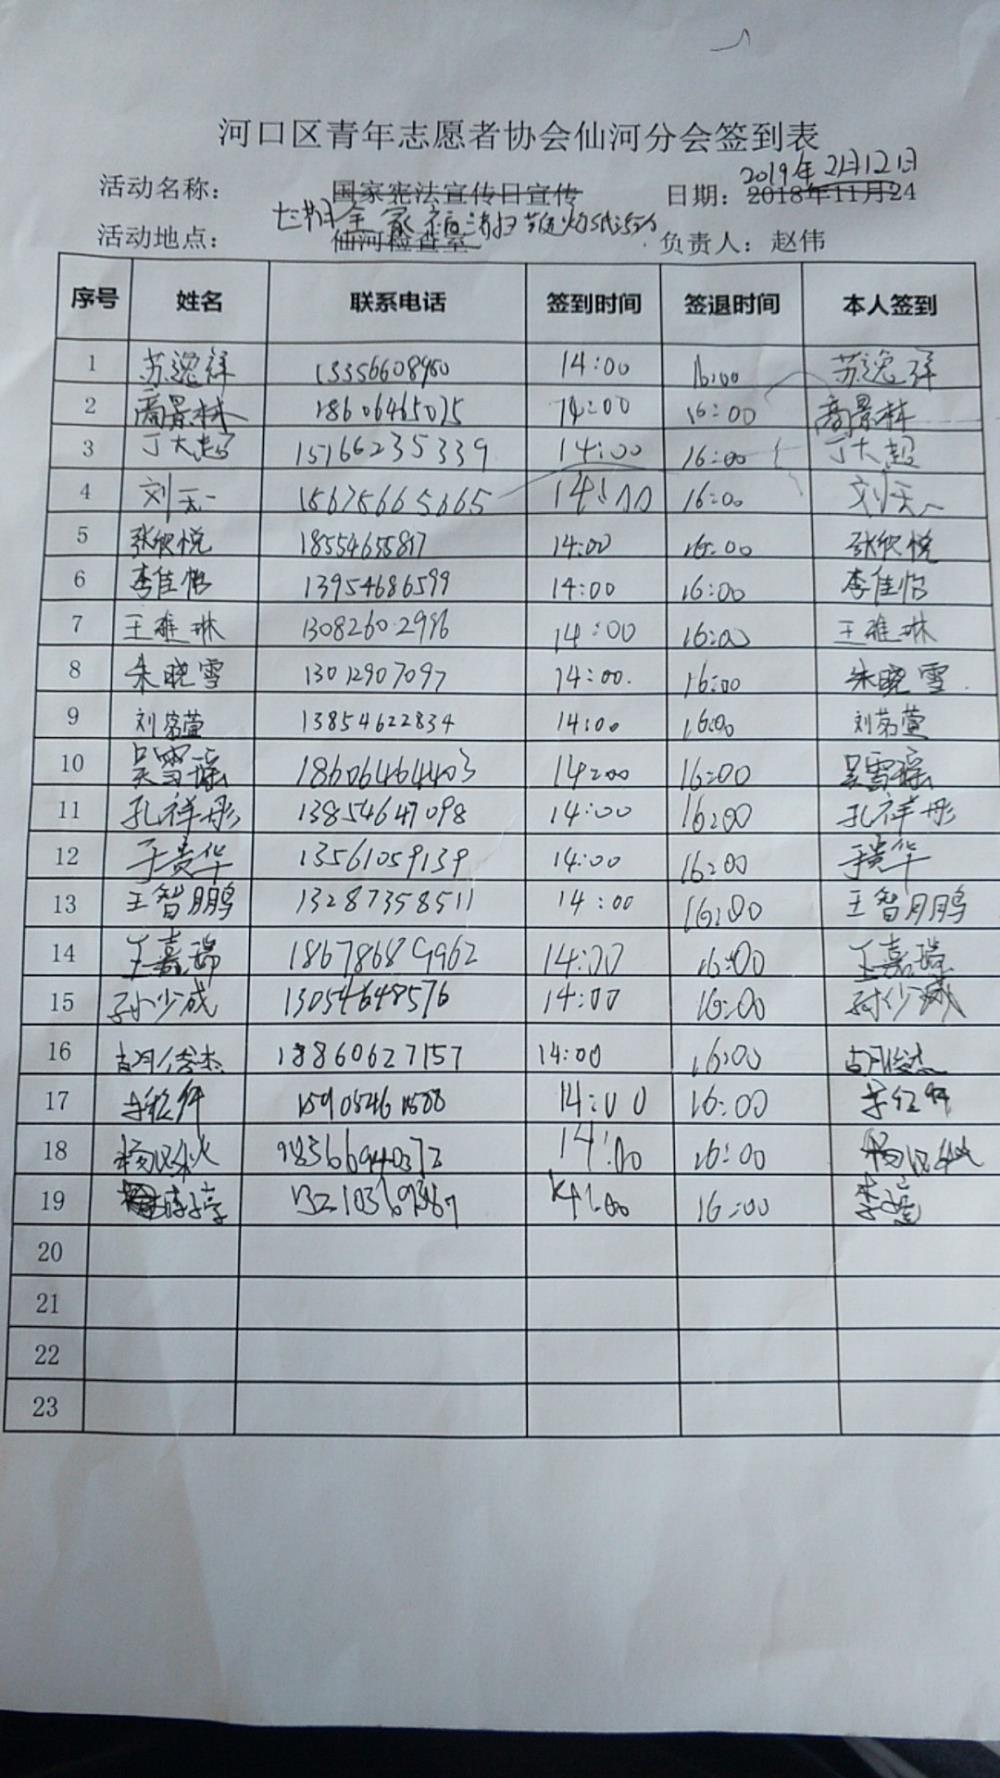 河口区青年志愿者协会仙河分会签到表
2019年2月12日
活动名称： 国家宪法宣传日宣传 日期：2018年11月24
全家福清扫
活动地点： 仙河检查室 负责人：赵伟
序号 姓名 联系电话 签到时间 签退时间 本人签到
1 苏逸祥 14:00 16:00 苏逸祥
2 高景林 18606465025 14:00 16:00 高景林
3 丁大超 15166235339 14:00 16:00 丁大超
4 刘天一 14:00 16:00 刘天一
5 张欣悦 14:00 16:00 张欣悦
6 李佳怡 13954686599 14:00 16:00 李佳怡
7 王雅琳 13082602996 14:00 16:00 王雅琳
8 朱晓雪 13012907097 14:00. 16:00 朱晓雪
9 刘茗萱 13854622834 14:00 16:00 刘茗萱
10 吴雪瑶 18606464403 14:00 16:00 吴雪瑶
11 孔祥彤 13854647098 14:00 16:00 孔祥彤
12 于贵华 13561059139 14:00 16:00 于贵华
13 王智鹏 13287358511 14:00 16:00 王智鹏
14 王嘉瑞 18678689962 14:00 16:00 王嘉瑞
15 孙少威 13054648576 14:00 16:00 孙少威
16 胡俊杰 18860627157 14:00 16:00 胡俊杰
17 14:00 16:00
18 14:00 16:00
19 14:00 16:00
20
21
22
23